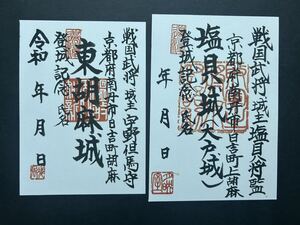 戦国武将 城主 宇野但馬守
京都府南丹市日吉町胡麻
東胡麻城
登城記念 氏名
令和 年 月 日
戦国武将 城主 塩貝将監
京都府南丹市日吉町上胡麻
塩貝城(大戸城)
登城記念 氏名
年 月 日